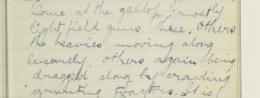 Come at the gallop, mostly
light field guns these. Others
the heavies moving along
leisurely, others again being
dragged along by crawling
grunting tractors. It is